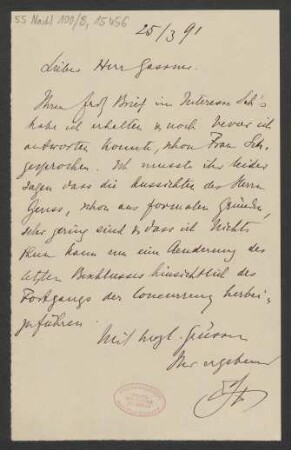 55 Nachl 100/B, 15456
25/3 91
Lieber Herr Gassner.
Ihren Brief im Interesse Sch's
habe ich erhalten u noch bevor ich
antworten konnte, schon Frau Sch.
gesprochen. Ich musste ihr leider
sagen dass die Aussichten des Herrn
schon aus formalen Gründen,
sehr gering sind u dass ich Nichts
thun kann um eine Aenderung des
letzten Beschlusses hinsichtlich des
Fortgangs der Concurrenz herbei-
zuführen.
Mit Grüssen
Ihr ergebener